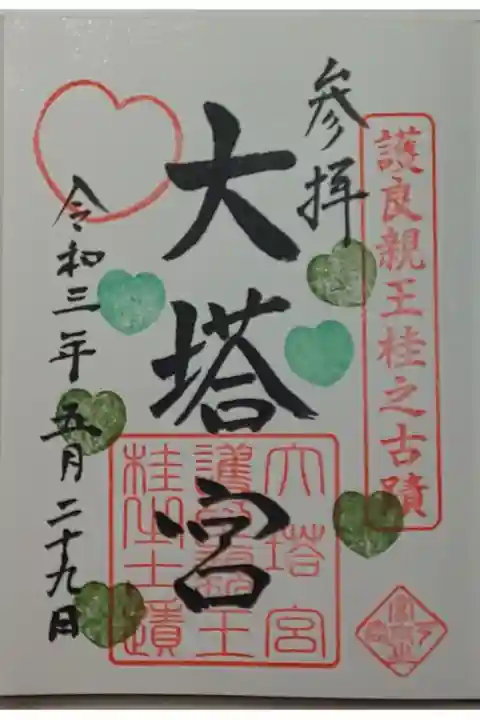 護良親王桂之古蹟
参拝
大塔宮
大塔宮
護良親王
令和三年五月二十九日